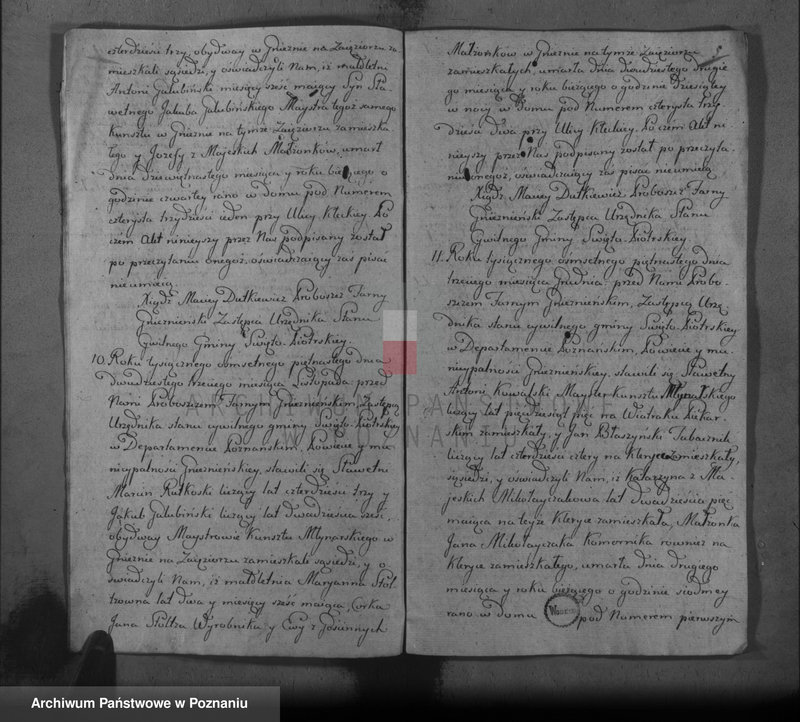 czterdzieści trzy, obydway w Gnieznie na Zaięzierzu za
mieszkali sąsiedzi, y oświadczyli Nam, iż małoletni
Antoni Gałubiński miesięcy sześć maiący Syn Sła
wetnego Jakuba Gałubińskiego Maystra tegoż samego
kunsztu w Gnieznie na tymże Zaięzierzu zamieszka
łego y Jozefy z Majeskich Małzonkow, umarł
dnia dziewiętnastego miesiąca y roku bieżącego o
godzinie czwartey rano w domu pod Numerem
czterysta trzydzieści ieden przy Ulicy Kleckiey. Po
czem Akt ninieyszy przez Nas podpisany został
po przeczytaniu onegoż, oświadczaiący zas pisać
nieumieią.
Xiądz Maciey Dutkiewicz Proboszcz Farny
Gnieznieński Zastępca Urzędnika Stanu
Cywilnego Gminy Święto-Piotrskiey.
10. Roku tysiącznego osmsetnego piętnastego dnia
dwudziestego trzeciego miesiąca Listopada przed
Nami Proboszczem Farnym Gnieznieńskim, Zastępcą
Urzędnika stanu cywilnego gminy Święto-Piotrskiey
w Departamencie Poznanskim, Powiecie y mu
nicypalności Gnieznieńskiey, stawili się Sławetni
Marcin Rutkoski liczący lat czterdzieści trzy y
Jakub Gałubiński liczący lat dwadzieścia sześć,
obydway Maystrowie Kunsztu Młynarskiego w
Gnieznie na Zaięzierzu zamieszkali sąsiedzi, y o
świadczyli Nam, iż małoletnia Maryanna Stol
trowna lat dwa y miesięcy sześć maiąca, Corka
Jana Stoltra Wyrobnika y Ewy z Josiannych
Małzonkow w Gnieznie na tymże Zaięzierzu
zamieszkałych, umarła dnia dwudziestego drugie
go miesiąca y roku bieżącego o godzinie dziesiątey
w nocy w domu pod Numerem czterysta trzy
dzieści dwa przy Ulicy Kleckiey. Po czem Akt ni
nieyszy przez Nas podpisany został po przeczyta
niu onegoż, oświadczaiący zas pisać nieumieią.
Xiądz Maciey Dutkiewicz Proboszcz Farny
Gnieznieński Zastępca Urzędnika Stanu
Cywilnego Gminy Święto-Piotrskiey
11. Roku tysiącznego osmsetnego piętnastego dnia
trzeciego miesiąca Grudnia przed Nami Probo
szczem Farnym Gnieznieńskim, Zastępcą Urzę
dnika stanu cywilnego gminy Święto-Piotrskiey
w Departamencie Poznanskim, Powiecie y mu
nicypalności Gnieznieńskiey, stawili się Sławetny
Antoni Kowalski Mayster kunsztu Młynarskiego
liczący lat pięcdziesiąt pięc na Wiatraku
skim zamieszkały, y Jan Błaszyński
liczący lat czterdzieści cztery na Klerycze zamieszkały,
sąsiedzi, y oświadczyli Nam, iż Katarzyna z Ma
jeskich Mikołayczakowa lat dwadzieścia pięć
maiąca na teyże Klerycze zamieszkała, Małzonka
Jana Mikołayczaka Komornika rownież na
Klerycze zamieszkałego, umarła dnia drugiego
miesiąca y roku bieżącego o godzinie siodmey
rano w domu pod Numerem pierwszym
Archiwum Państwowe w Poznaniu